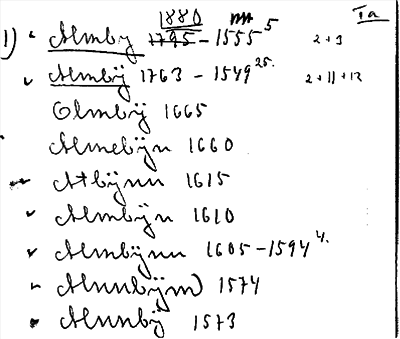 1880 Ia
1) Almby 1795 - 1555 5 2+3
Almbÿ 1763 - 1549 25. 2+11+12
Olmbÿ 1665
Almebÿn 1660
Atbÿnn 1615
Almbÿn 1610
Almbÿnn 1605-1594 4.
Alnnbÿm) 1574
Alnnbÿ 1573